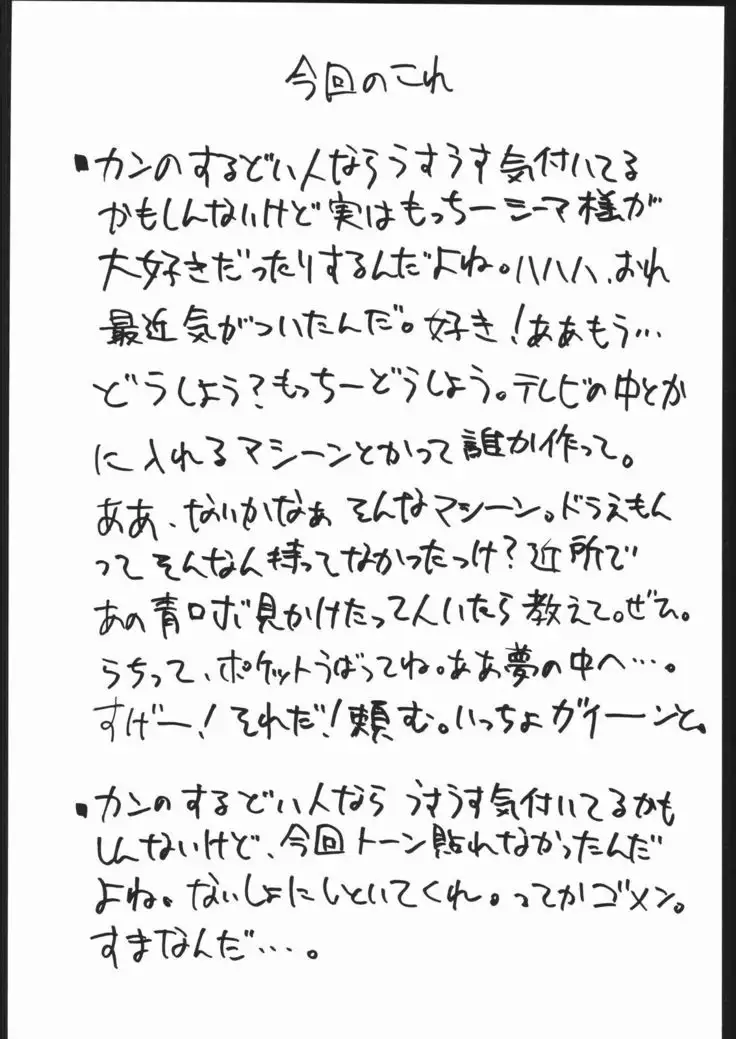 今回のこれ
・カンのするどい人ならうすうす気付いてる
かもしんないけど実はもっちーシーマ様が
大好きだったりするんだよね。ハハハ、おれ
最近気がついたんだ。好き!ああもう…
どうしよう?もっちーどうしよう。テレビの中とか
に入れるマシーンとかって誰か作って。
ああ、ないかなぁそんなマシーン。ドラえもん
ってそんなん持ってなかったっけ?近所で
あの青ロボ見かけたって人いたら教えて。ぜひ。
らちって、ポケットうばってね。ああ夢の中へ…。
すげー!それだ!頼む。いっちょガイーンと。
・カンのするどい人ならうすうす気付いてるかも
しんないけど、今回トーン貼れなかったんだ
よね。ないしょにしといてくれ。ってかゴメン。
すまなんだ…。